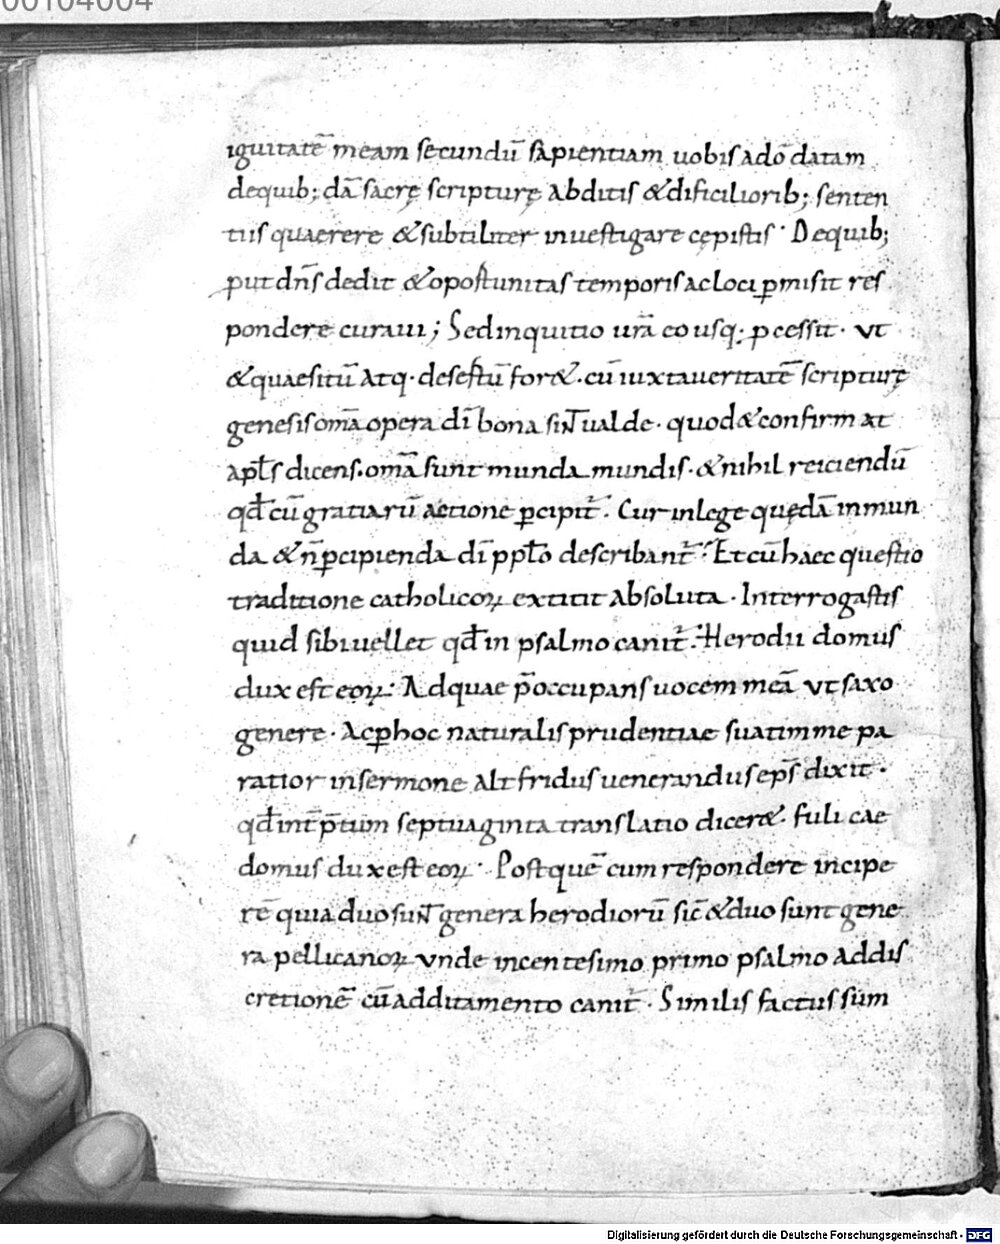 00104004
iguitatē meam secundū sapientiam uobis adō datam
dequib; dā sacrę scripturę abditis &dificiliorib; senten
tiis quaerere &subtiliter inuestigare cępistis · Dequib;
put dn̄s dedit &oportunitas temporis acloci ꝑmisit res
pondere curaui; Sed inquitio ura̅ eo usq; pcessit · ut
&quaesitū atq· desertū for&· cū iuxta ueritatē scripturę
genesis om̅a opera dī bona sīNT ualde · quod&confirmat
apl̅s dicens. om̅a sunt munda mundis. &nihil reiciendū
qd̅ cū gratiarū actione ꝑcipit̅ · Cur inlege quędā inmun
da &n̅ ꝑcipienda dī pplo̅ describant̅· Et cū haec questio
traditione catholicoꝝ extitit absoluta · Interrogastis
quid sibi uellet qd̅ in psalmo canit̅ · Herodii domus
dux est eoꝝ: Adquae p̅occupans uocem meā ut saxo
genere · Ac ꝑhoc naturalis prudentiae suatim me pa
ratior in sermone altfridus uenerandus ep̅s dixit ·
qd̅ int̅p̅tum septuaginta translatio dicer&· fulicae
domus dux est eoꝝ · Post quē cum respondere incipe
rē quia duo suNT genera herodiorū sic̅ &duo sunt gene
ra pellicanoꝝ unde in centesimo primo psalmo addis
cretionē cū additamento canit̅ · Similis factus sum
Digitalisierung gefördert durch die Deutsche Forschungsgemeinschaft - DFG